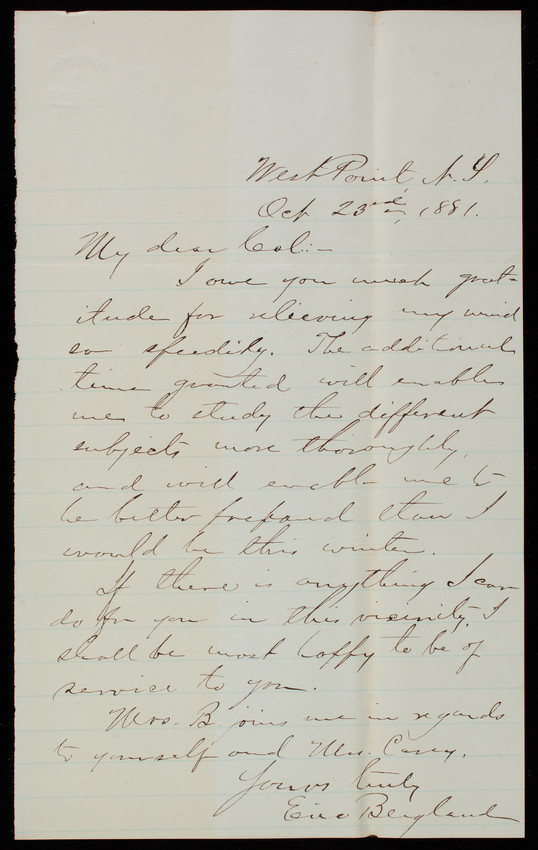 West Point, N.Y.
Oct 23rd, 1881.
My dear Col:-
I owe you much grat-
itude for relieving my mind
so speedily. The additional
time granted will enable
me to study the different
subjects more thoroughly,
and will enable me to
be better prepared than I
would be this winter.
If there is anything I can
do for you in this vicinity, I
shall be most happy to be of
service to you.
Mrs. B. joins me in regards
to yourself and Mrs. Casey.
Yours truly
Eric Bergland